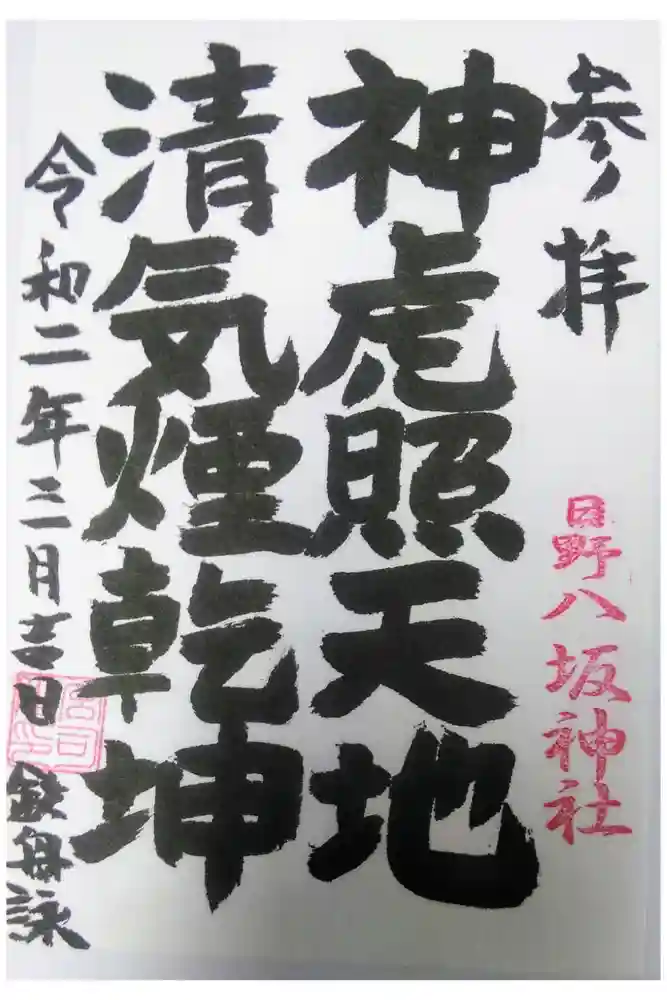 参拝
日野八坂神社
神虎照天地
清気煙乾坤
令和二年三月日 鉄舟詠